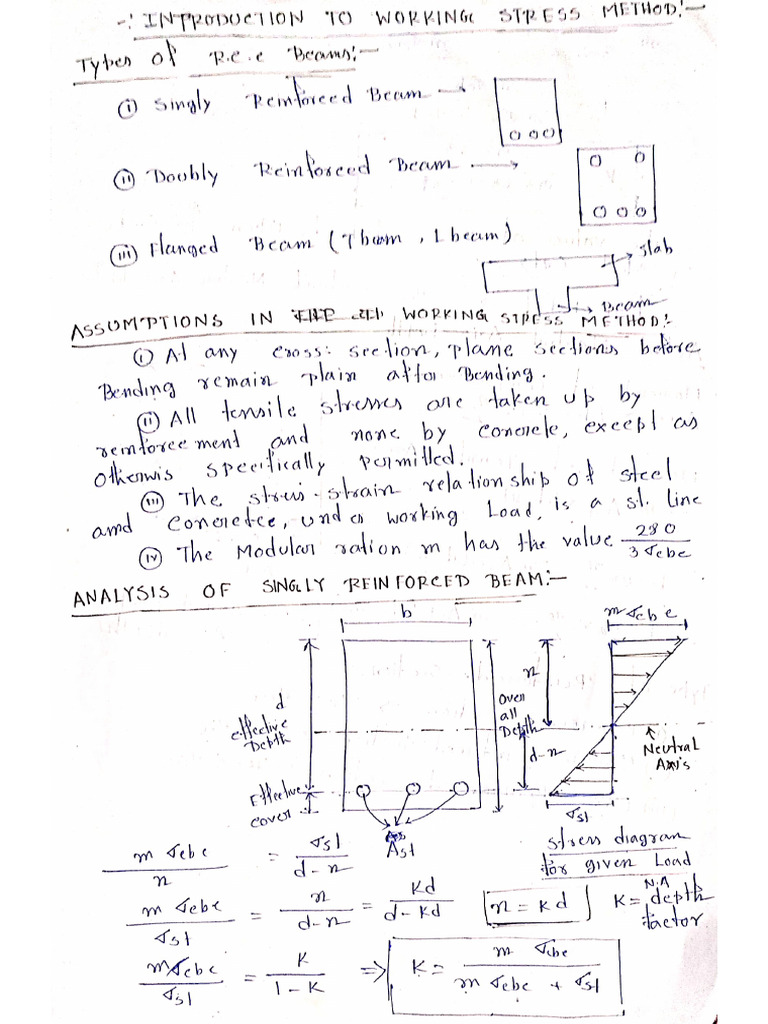 -: INTRODUCTION TO WORKING STRESS METHOD:-
Types of R.C.C Beams:-
(i) Singly Reinforced Beam
(ii) Doubly Reinforced Beam
(iii) Flanged Beam (T beam, L beam)
Slab
Beam
ASSUMPTIONS IN WORKING STRESS METHOD:
(i) At any cross: section, plane sections before
Bending remain plain after Bending.
(ii) All tensile stresses are taken up by
reinforcement and none by concrete, except as
otherwis specifically permitted.
(iii) The stress-strain relationship of steel
and concretce, under working Load, is a st. line
(iv) The Modular ration m has the value 280/3σcbc
ANALYSIS OF SINGLY REINFORCED BEAM:-
b
mσcbc
d
effective
Depth
Over
all
Depth
n
d-n
Neutral
Axis
Effective
cover
Ast
σst
stress diagram
for given Load
mσcbc/n = σst/(d-n)
mσcbc/σst = n/(d-n) = Kd/(d-Kd) n = Kd K = N.A depth
factor
mσcbc/σst = K/(1-K) => K = mσcbc/(mσcbc + σst)